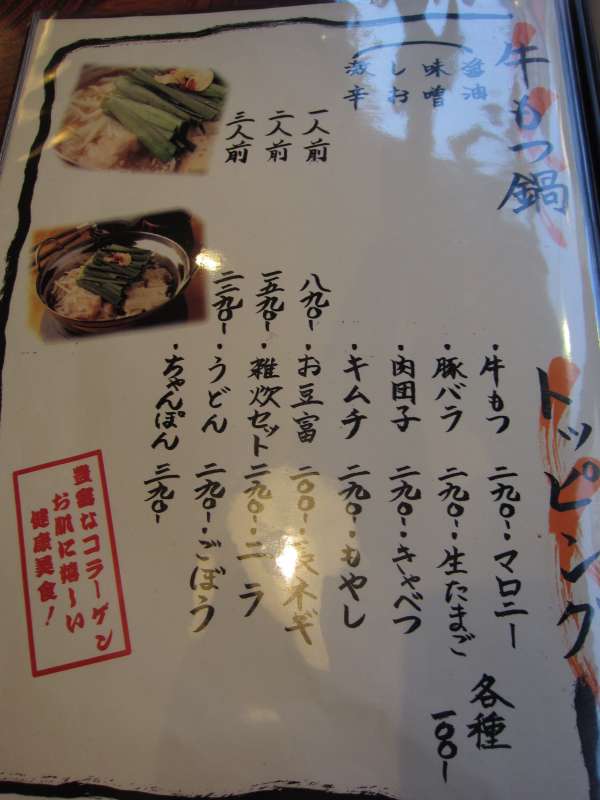 牛もつ鍋
醤油
味噌
しお
激辛
一人前 八九〇-
二人前 一五九〇-
三人前 二二九〇-
トッピング
・牛もつ 二九〇-
・豚バラ 二九〇-
・肉団子 二九〇-
・キムチ 二九〇-
・お豆富 二〇〇-
・雑炊セット 二九〇-
・うどん 二九〇-
・ちゃんぽん 三九〇-
・マロニー
・生たまご
・きゃべつ
・もやし
ネギ
・ニラ
・ごぼう
各種
一〇〇-
豊富なコラーゲン
お肌に嬉〜い
健康美食!